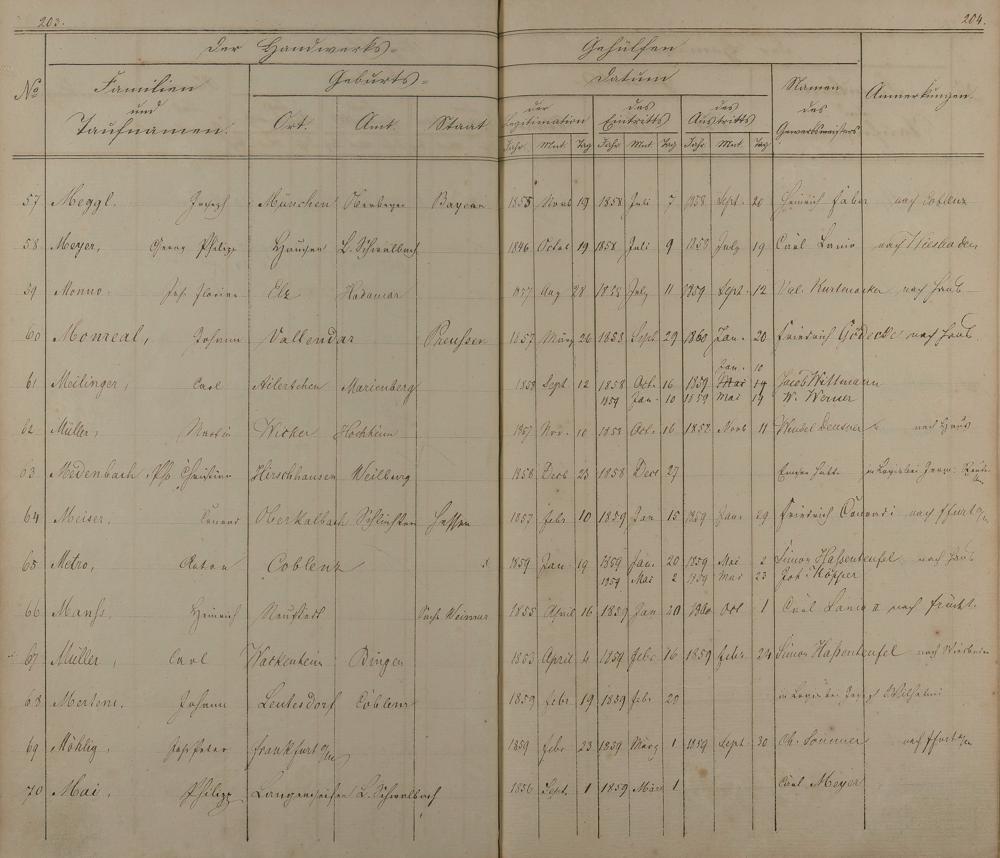 203. 204.
Der Handwerks- Gehülfen
No Familien und Taufnamen. Geburts- Datum Namen des Gewerbsmeisters Anmerkungen.
Ort. Amt. Staat der Legitimation des Eintritts des Austritts
Jahr Mnt. Tag Jahr Mnt. Tag Jahr Mnt. Tag
57 Meggl. Joseph München Bayern 1855 Novb 19 1858 Juli 7 1858 Sept. 20 Heinrich Faber nach Coblenz
58 Meyer, Georg Philipp L. Schwalbach 1846 Octob 19 1858 Juli 9 1858 July 19 Carl nach Wiesbaden
59 Monno. Jos. Florian Elz Hadamar 1857 Aug 28 1858 July 11 1859 Sept. 12 Val. nach Haus
60 Monreal, Johann Vallendar Preussen 1857 März 26 1858 Sept 29 1860 Jan. 20 Friedrich Gödecke nach Haus
Jan. 10
61 Meilinger, Carl Ailertchen Marienberg 1858 Sept. 12 1858 Oct. 16 1859 Mai 14 Jacob Wittmann
1859 Jan. 10 1859 Mai 19 W. Werner
62 Müller, Martin Wicker Hochheim 1857 Nov. 10 1858 Oct. 16 1858 Novb 11 Wendel nach Haus
63 Medenbach, Ph. Christian Hirschhausen Weilburg 1856 Decb 23 1858 Decb 27
64 Meiser. Conrad Oberkalbach Schlüchtern Hessen 1857 Febr 10 1859 Jan 15 1859 Jan. 29 Friedrich Conradi nach Ffurt a/m
65 Metro, Anton Coblenz 1859 Jan. 19 1859 Jan. 20 1859 Mai 2 Simon Hassenteufel nach Haus
1859 Mai 2 1859 Mai 23 Joh: Köpper
66 Manss. Heinrich Neustadt Sachs Weimar 1855 April 16 1859 Jan 20 1860 Oct 1 Carl nach Frücht.
67 Müller, Carl Bingen 1853 April 4 1859 Febr. 16 1859 Febr. 24 Simon Hassenteufel nach Wiesbaden
68 Mertens. Johann Leutesdorf Coblenz 1859 Febr. 19 1859 Febr 20 Wilhelmi
69 Möhlig, Joh. Peter Frankfurt a/m 1859 Febr 23 1859 März 1 1859 Sept. 30 Ch. Sommer nach Ffurt a/m
70 Mai, Philipp L. Schwalbach 1856 Sept. 1 1859 März 1. Carl Meyer